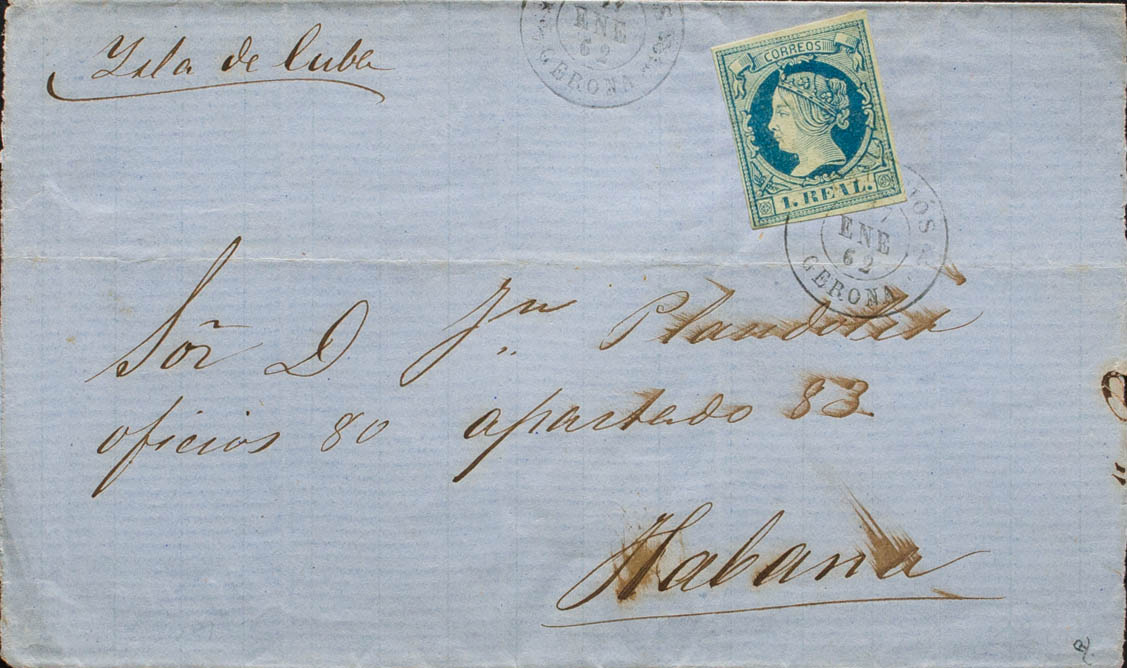 Ysla de Cuba
ENE
62
GERONA
CORREOS
1. REAL.
ENE
62
GERONA
Sor̃ D Jn
oficios 80 apartado 83
Habana